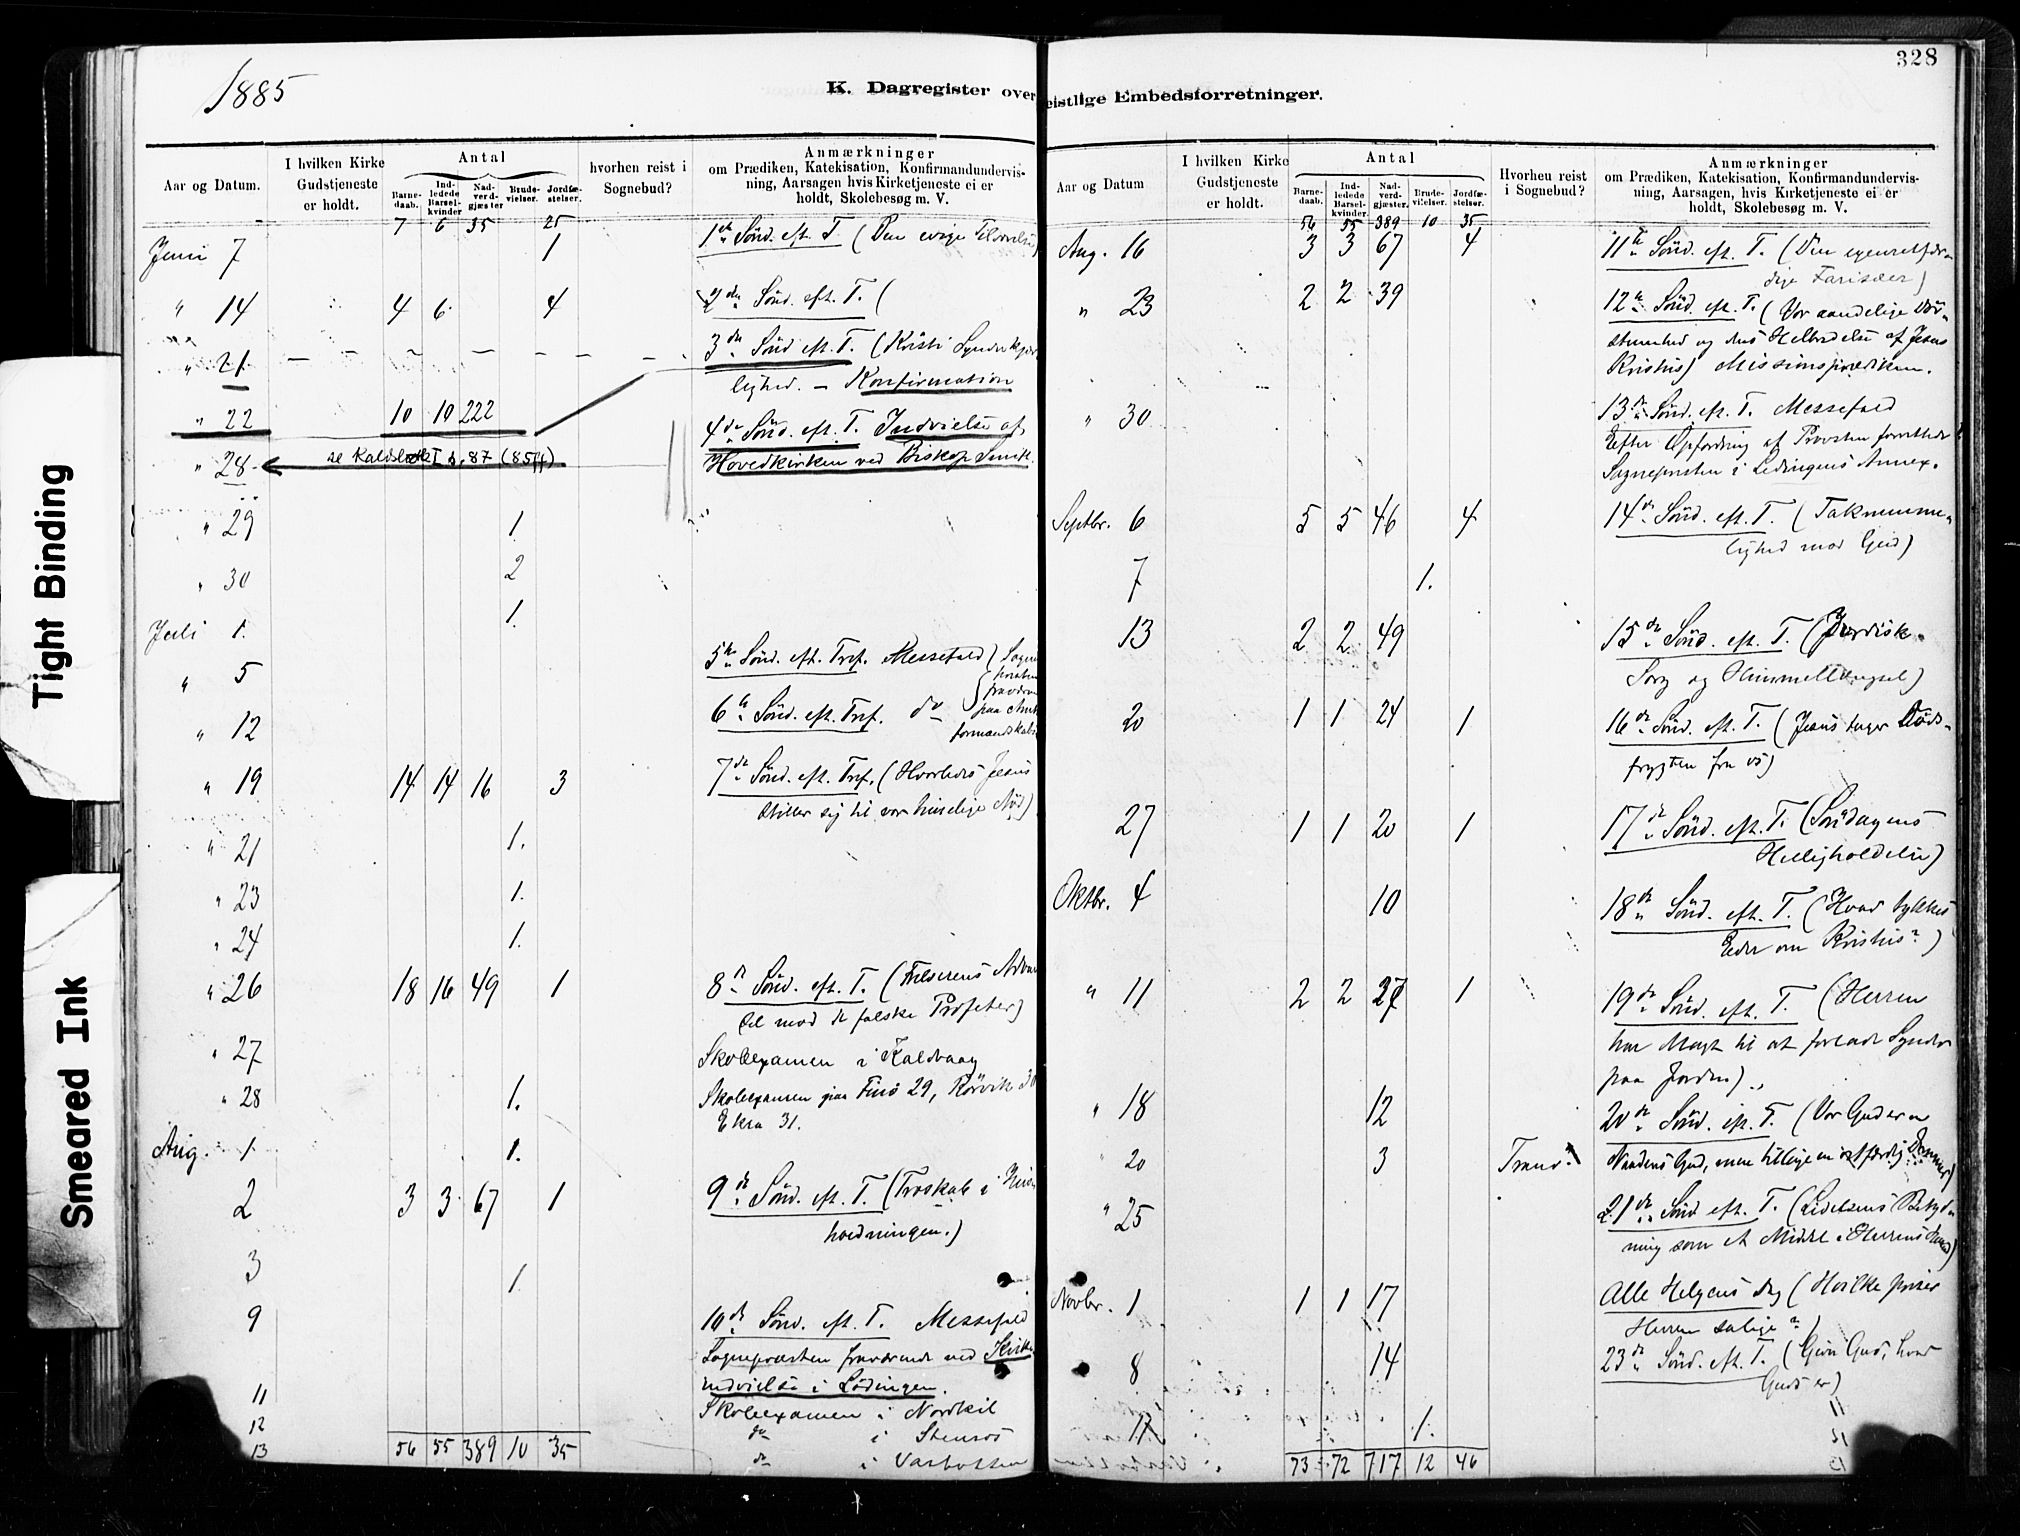 328
1885
K. Dagregister over
eistlige Embedsforretninger.
Aar og Datum.
I hvilken Kirke Gudstjeneste er holdt.
Antal
Barne-daab.
Ind-ledede Barsel-kvinder
Nad-verd-gjæster
Brude-vielser.
Jordfæ-stelser.
hvorhen reist i Sognebud?
Anmærkninger
om Prædiken, Katekisation, Konfirmandundervis-
ning, Aarsagen hvis Kirketjeneste ei er
holdt, Skolebesøg m. V.
7 6 35 25
Juni 7 1 1ste Sönd. eft. T. (Den evige
" 14 4 6 4 2den Sönd. eft. T. (
" 21 — — — — — — — 3die Sönd eft. T. (Kristi
lighed. – Konfirmation
" 22 10 10 222 4de Sönd. eft. T. Indvielse af
" 28 se Kaldsbok I s. 87 (85ff) Hovedkirken ved Biskop Smitt.
" 29 1.
" 30 2
Juli 1. 1.
" 5 5te Sönd. eft. Tref. Messefald (Sogne
præsten
fraværen
" 12 6te Sönd. eft. Tref. do paa Amt
formandskabs
" 19 14 14 16 3 7de Sönd. eft. Tref. (Hvorledes Jesus
stiller sig til vor huslige Nöd)
" 21 1.
" 23 1.
" 24 1.
" 26 18 16 49 1 8de Sönd. eft. T. (Frelserens Advar
sel mod de falske Profeter)
" 27 Skoleexamen i Kaldvaag
" 28 1. Skoleexamen paa Finö 29, Rörvik 30
Ekra 31.
Aug. 1 1.
2 3 3 67 1 9de Sönd. eft. T. (Troskab i Hus
holdningen.)
3 1.
9 10de Sönd. eft. T. Messefald
Sognepræsten fraværende ved Kirke
indvielse i Lödingen.
11 Skoleexamen i Nordkil
12 do i Stensös
13 do i Varbotten
56 55 389 10 35
Aar og Datum
I hvilken Kirke Gudstjeneste er holdt.
Antal
Barne-daab.
Ind-ledede Barsel-kvinder
Nad-verd-gjæster.
Brude-vielser.
Jordfæ-stelser.
Hvorhen reist i Sognebud?
Anmærkninger
om Prædiken, Katekisation, Konfirmandundervis-
ning, Aarsagen, hvis Kirketjeneste ei er
holdt, Skolebesøg m. V.
56 55 389 10 35
Aug. 16 3 3 67 4 11te Sönd. eft. T. (Den egenretfær-
dige Farisæer)
" 23 2 2 39 12te Sönd. eft. T. (Vor aandelige Döv-
stumhed og dens Helbredelse af Jesus
Kristus) Missionsprædiken.
" 30 13de Sönd. eft. T. Messefald
Efter Opfordring af Provsten forrettede
Sognepresten i Lödingens Annex.
Septbr. 6 5 5 46 4 14de Sönd. eft. T. (Taknemme-
lighed mod Gud)
7 1.
13 2 2 49 15de Sönd. eft. T. (Jordisk
Sorg og Himmellængsel)
20 1 1 24 1 16de Sönd. eft. T. (Jesus tager Döds-
frygten fra os)
27 1 1 20 1 17de Sönd. eft. T. (Söndagens
Helligholdelse)
Oktbr. 4 10 18de Sönd. eft. T. (Hvad tykkes
Eder om Kristus?)
" 11 2 2 27 1 19de Sönd. eft. T. (Herren
har Magt til at forlade Synder
paa Jorden).
" 18 12 20de Sönd. eft. T. (Vor Gud er en
" 20 3 Tranö. Naadens Gud, men tillige en retfærdig Dommer)
" 25 21de Sönd eft. T. (Lidelsens Betyd-
ning som et Middel i Herrens Haand)
Novbr. 1 1 1 17 Alle Helgens Dag (Hvilke priser
Herren salige?)
8 14 23de Sönd. eft. T. (Giver Gud, hvad
Guds er)
17 1.
73 72 717 12 46
Tight Binding
Smeared Ink